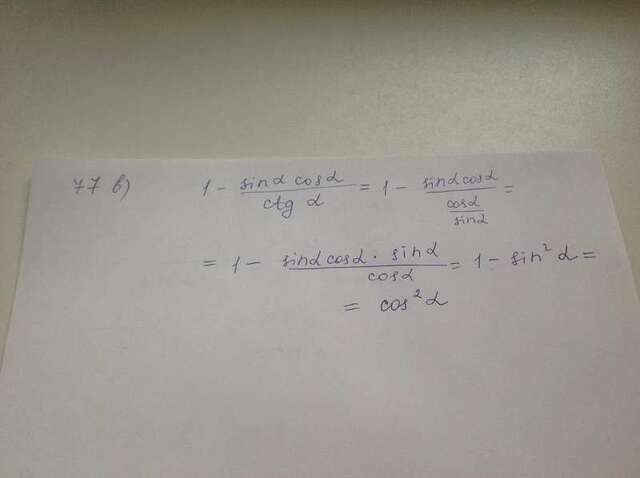 77 в) 1 - sinα cosα / ctg α = 1 - sinα cosα / (cosα / sinα) =
= 1 - sinα cosα · sinα / cosα = 1 - sin²α =
= cos²α